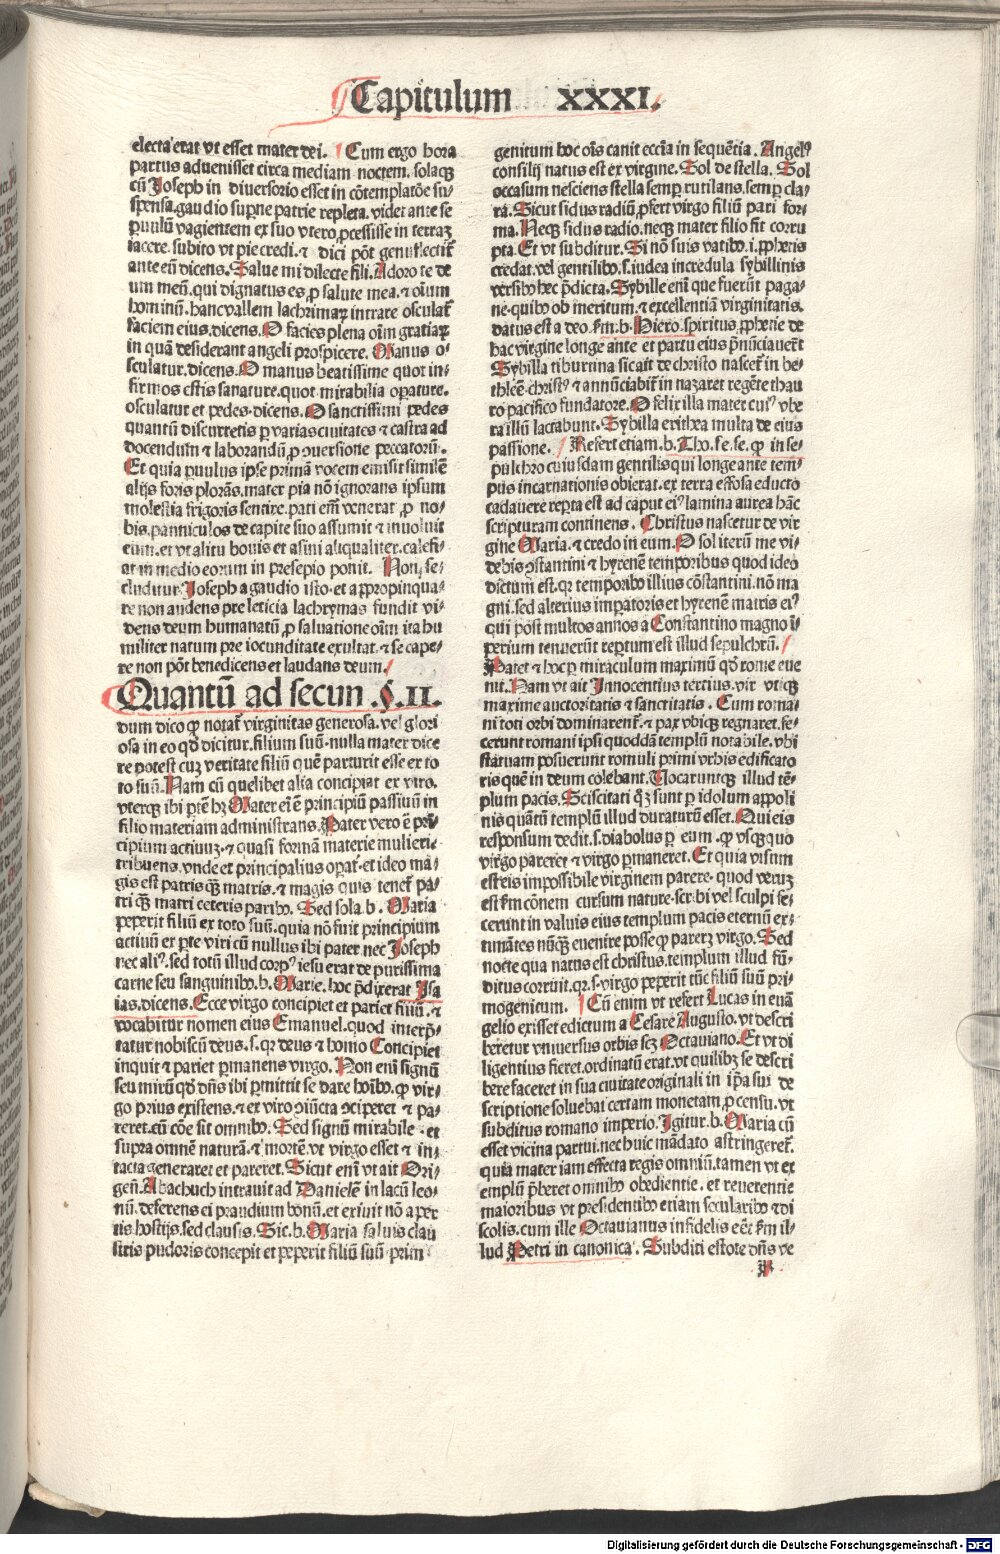 Capitulum XXXI.
electa erat vt esset mater dei. Cum ergo hora
partus aduenisset circa mediam noctem. solaqȝ
cū Joseph in diuersorio esset in cōtemplatōe su/
spensa. gaudio supne patrie repleta. videt ante se
puulū vagientem ex suo vtero ꝓcessisse in terraȝ
iacere. subito vt pie credi. ⁊ dici pōt genuflectit̄
ante eū dicens. Salue mi dilecte fili. Adoro te de
um meū. qui dignatus es ꝓ salute mea. ⁊ oīum
hominū. hanc vallem lachrimaꝝ intrare osculat̄
faciem eius. dicens. O facies plena oīm gratiaꝝ
in quā desiderant angeli prospicere. Manus o/
sculatur. dicens. O manus beatissime quot in/
firmos estis sanature. quot mirabilia opature.
osculatur et pedes. dicens. O sanctissimi pedes
quantū discurretis p varias ciuitates ⁊ castra ad
docendum ⁊ laborandū ꝓ ꝯuersione peccatorū.
Et quia puulus ipse primā vocem emisit similē
alijs foris plorās. mater pia nō ignorans ipsum
molestia frigoris sentire. pati em̄ venerat ꝓ no/
bis. panniculos de capite suo assumit ⁊ inuoluit
eum. et vt alitu bouis et asini aliqualiter. calefi/
at in medio eorum in presepio ponit. Non se/
cluditur Joseph a gaudio isto. et appropinqua/
re non audens pre leticia lachrymas fundit vi/
dens deum humanatū ꝓ saluatione oīm ita hu
militer natum pre iocunditate exultat. ⁊ se cape/
re non pōt benedicens et laudans deum.
Quantū ad secun .§.II.
dum dico ꝙ notat̄ virginitas generosa. vel glori
osa in eo qd̄ dicitur. filium suū. nulla mater dice
re potest cuȝ veritate filiū quē parturit esse ex to
to suū. Nam cū quelibet alia concipiat ex viro.
vterqȝ ibi ptē hȝ Mater em̄ ē principiū passiuū in
filio materiam administrans. Pater vero ē prī
cipium actiuuȝ. ⁊ quasi formā materie mulieri/
tribuens. vnde et principalius opat̄. et ideo ma/
gis est patris qȝ matris. ⁊ magis quis tenet̄ pa/
tri qȝ matri ceteris paribꝰ. Sed sola .b. Maria
peperit filiū ex toto suū. quia nō fuit principium
actiuū ex pte viri cū nullus ibi pater nec Joseph
nec aliꝰ. sed totū illud corpꝰ iesu erat de purissima
carne seu sanguinibꝰ. b. Marie. hoc pdixerat Isa
ias. dicens. Ecce virgo concipiet et pariet filiū. ⁊
vocabitur nomen eius Emanuel. quod interp̄/
tatur nobiscū deus. s. qꝛ deus ⁊ homo Concipiet
inquit ⁊ pariet pmanens virgo. Non em̄ signū
seu mirū qd̄ dn̄s ibi pmittit se dare hoībꝰ. ꝙ vir/
go prius existens. ⁊ ex viro ꝯiūcta ꝯciperet ⁊ pa/
reret. cū cōe sit omnibꝰ. Sed signū mirabile. et
supra omnē naturā. ⁊ mortē. vt virgo esset ⁊ in/
tacta generaret et pareret. Sicut em̄ vt ait Ori/
gen̄. Abachuch intrauit ad Danielē in lacū leo/
nū. deferens ei prandium bonū. et exiuit nō aper
tis hostijs. sed clausis. Sic. b. Maria saluis clau
stris pudoris concepit et peperit filiū suū prim
genitum hoc oīs canit ecc̄ia in sequētia. Angelꝰ
consilij natus est ex virgine. Sol de stella. Sol
occasum nesciens stella semp rutilans. semp cla/
ra. Sicut sidus radiū. ꝓfert virgo filiū pari for/
ma. Neqȝ sidus radio. neqȝ mater filio fit corru
pta. Et vt subditur. Si nō suis vatibꝰ. i. ꝓphetis
credat. vel gentilibꝰ. s. iudea incredula sybillinis
versibꝰ hec pdicta. Sybille eni que fuerūt paga/
ne. quibꝰ ob meritum. ⁊ excellentiā virginitatis.
datus est a deo. fm. b. Hiero. spiritus ꝓphetie de
hac virgine longe ante et partu eius pnūciauert̄
Sybilla tiburtina sic ait de christo nascet̄ in be/
thleē. christꝰ ⁊ annūciabit̄ in nazaret regēte thau
ro pacifico fundatore. O felix illa mater cuiꝰ vbe
ra illū lactabunt. Sybilla erithea multa de eius
passione. Refert etiam. b. Tho. se. se. ꝙ in se/
pulchro cuiusdam gentilis qui longe ante tem/
pus incarnationis obierat. ex terra effosa educto
cadauere repta est ad caput eiꝰ lamina aurea hāc
scripturam continens. Christus nascetur de vir
gine Maria. ⁊ credo in eum. O sol iterū me vi/
debis ꝯstantini ⁊ hyrenē temporibus quod ideo
dictum est. qꝛ temporibꝰ illius cōstantini. nō ma
gni. sed alterius impatoris et hyrenē matris eiꝰ
qui post multos annos a Constantino magno ī/
perium tenuerūt reptum est illud sepulchrū.
Patet ⁊ hoc p miraculum maximū qd̄ rome eue
nit. Nam vt ait Innocentius tertius. vir vtiqȝ
maxime auctoritatis ⁊ sanctitatis. Cum roma/
ni toti orbi dominarent̄. ⁊ pax vbiqȝ regnaret. fe/
cerunt romani ipsi quoddā templū notabile. vbi
statuam posuerunt romuli primi vrbis edificato
ris quē in deum colebant. Vocaruntqȝ illud tē/
plum pacis. Sciscitati qȝ sunt p idolum appoli
nis quātū templū illud duraturū esset. Qui eis
responsum dedit. s. diabolus p eum. ꝙ vsqȝquo
virgo pareret ⁊ virgo pmaneret. Et quia visum
est eis impossibile virginem parere. quod veruȝ
est fm cōnem cursum nature. scribi vel sculpi fe/
cerunt in valuis eius templum pacis eternū ex/
timātes nūqȝ euenire posse ꝙ pareꝛȝ virgo. Sed
nocte qua natus est christus. templum illud fū/
ditus corruit. qꝛ. s. virgo peperit tūc filiū suū pri/
mogenitum. Cū enim vt refert Lucas in euā
gelio exisset edictum a Cesare Augusto. vt descri
beretur vniuersus orbis scȝ Octauiano. Et vt di
ligentius fieret. ordinatū erat. vt quilibȝ se descri
bere faceret in sua ciuitate originali in ip̄a sui de
scriptione soluebat certam monetam ꝓ censu. vt
subditus romano imperio. Igitur. b. Maria cū
esset vicina partui. nec huic mādato astringeret̄.
quia mater iam effecta regis omniū. tamen vt ex
emplū pberet omnibꝰ obedientie. et reuerentie
maioribus vt presidentibꝰ etiam secularibꝰ ⁊ di
scolis. cum ille Octauianus infidelis eēt fm il/
lud Petri in canonica. Subditi estote dn̄s ve